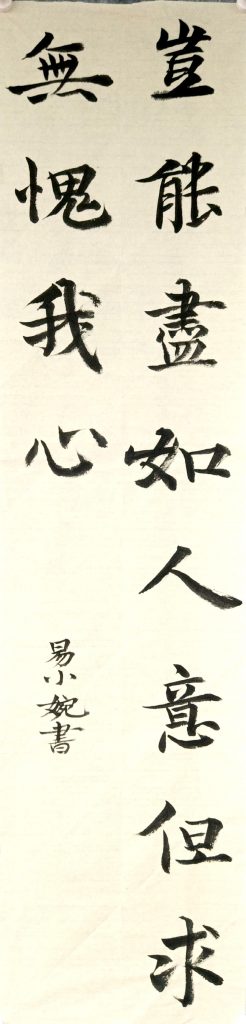 豈能盡如人意但求
無愧我心
易小婉書